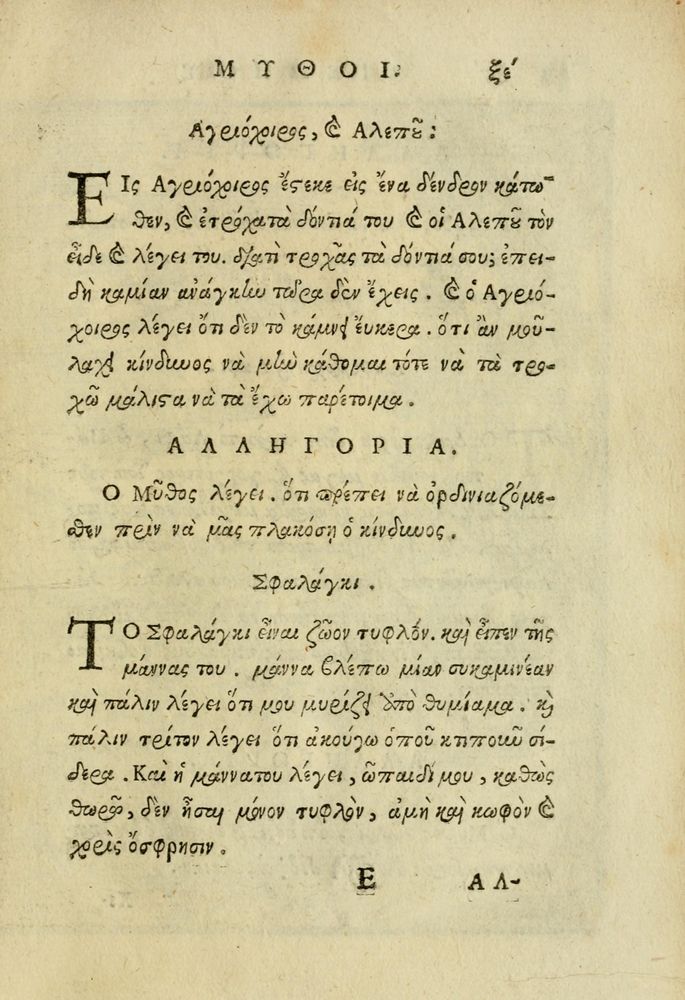 ΜΥΘΟΙ. ξε΄
Αγριόχοιρος, ϗ Αλεποῦ:
ΕΙς Αγριόχοιρος ἔστεκε εἰς ἕνα δένδρον κάτω-
θεν, ϗ ἐτρόχατὰ δόντιά του ϗ οἱ Αλεποῦ τὸν
εἶδε ϗ λέγει του. διατὶ τροχᾶς τὰ δόντιά σου; ἐπει-
δὴ καμίαν ανάγκην τῶρα δὲν ἔχεις. ϗ ὁ Αγριό-
χοιρος λέγει ὅτι δὲν τὸ κάμνει ἔυκερα. ὅτι ἂν μοῦ-
λαχει κίνδυνος νὰ μὴν κάθομαι τότε νὰ τὰ τρο-
χῶ μάλιστα νὰ τὰ ἔχω παρέτοιμα.
ΑΛΛΗΓΟΡΙΑ.
Ο Μῦθος λέγει. ὅτι πρέπει νὰ ὀρδινιαζόμε-
θεν πρὶν νὰ μᾶς πλακόση ὁ κίνδυνος.
Σφαλάγκι.
ΤΟ Σφαλάγκι εἶναι ζῶον τυφλόν. καὶ εἶπεν τῆς
μάννας του. μάννα βλέπω μίαν συκαμινέαν
καὶ πάλιν λέγει ὅτι μου μυρίζει ὑπὸ θυμίαμα. κὶ
πάλιν τρίτον λέγει ὅτι ἀκούγω ὁποῦ κτιποιοῦν σί-
δερα. Καὶ ἡ μάννατου λέγει, ὦπαιδί μου, καθὼς
θωρῶ, δὲν ἦσαι μόνον τυφλὸν, ἀμὴ καὶ κωφὸν ϗ
χορὶς ὄσφρησιν.
Ε ΑΛ-